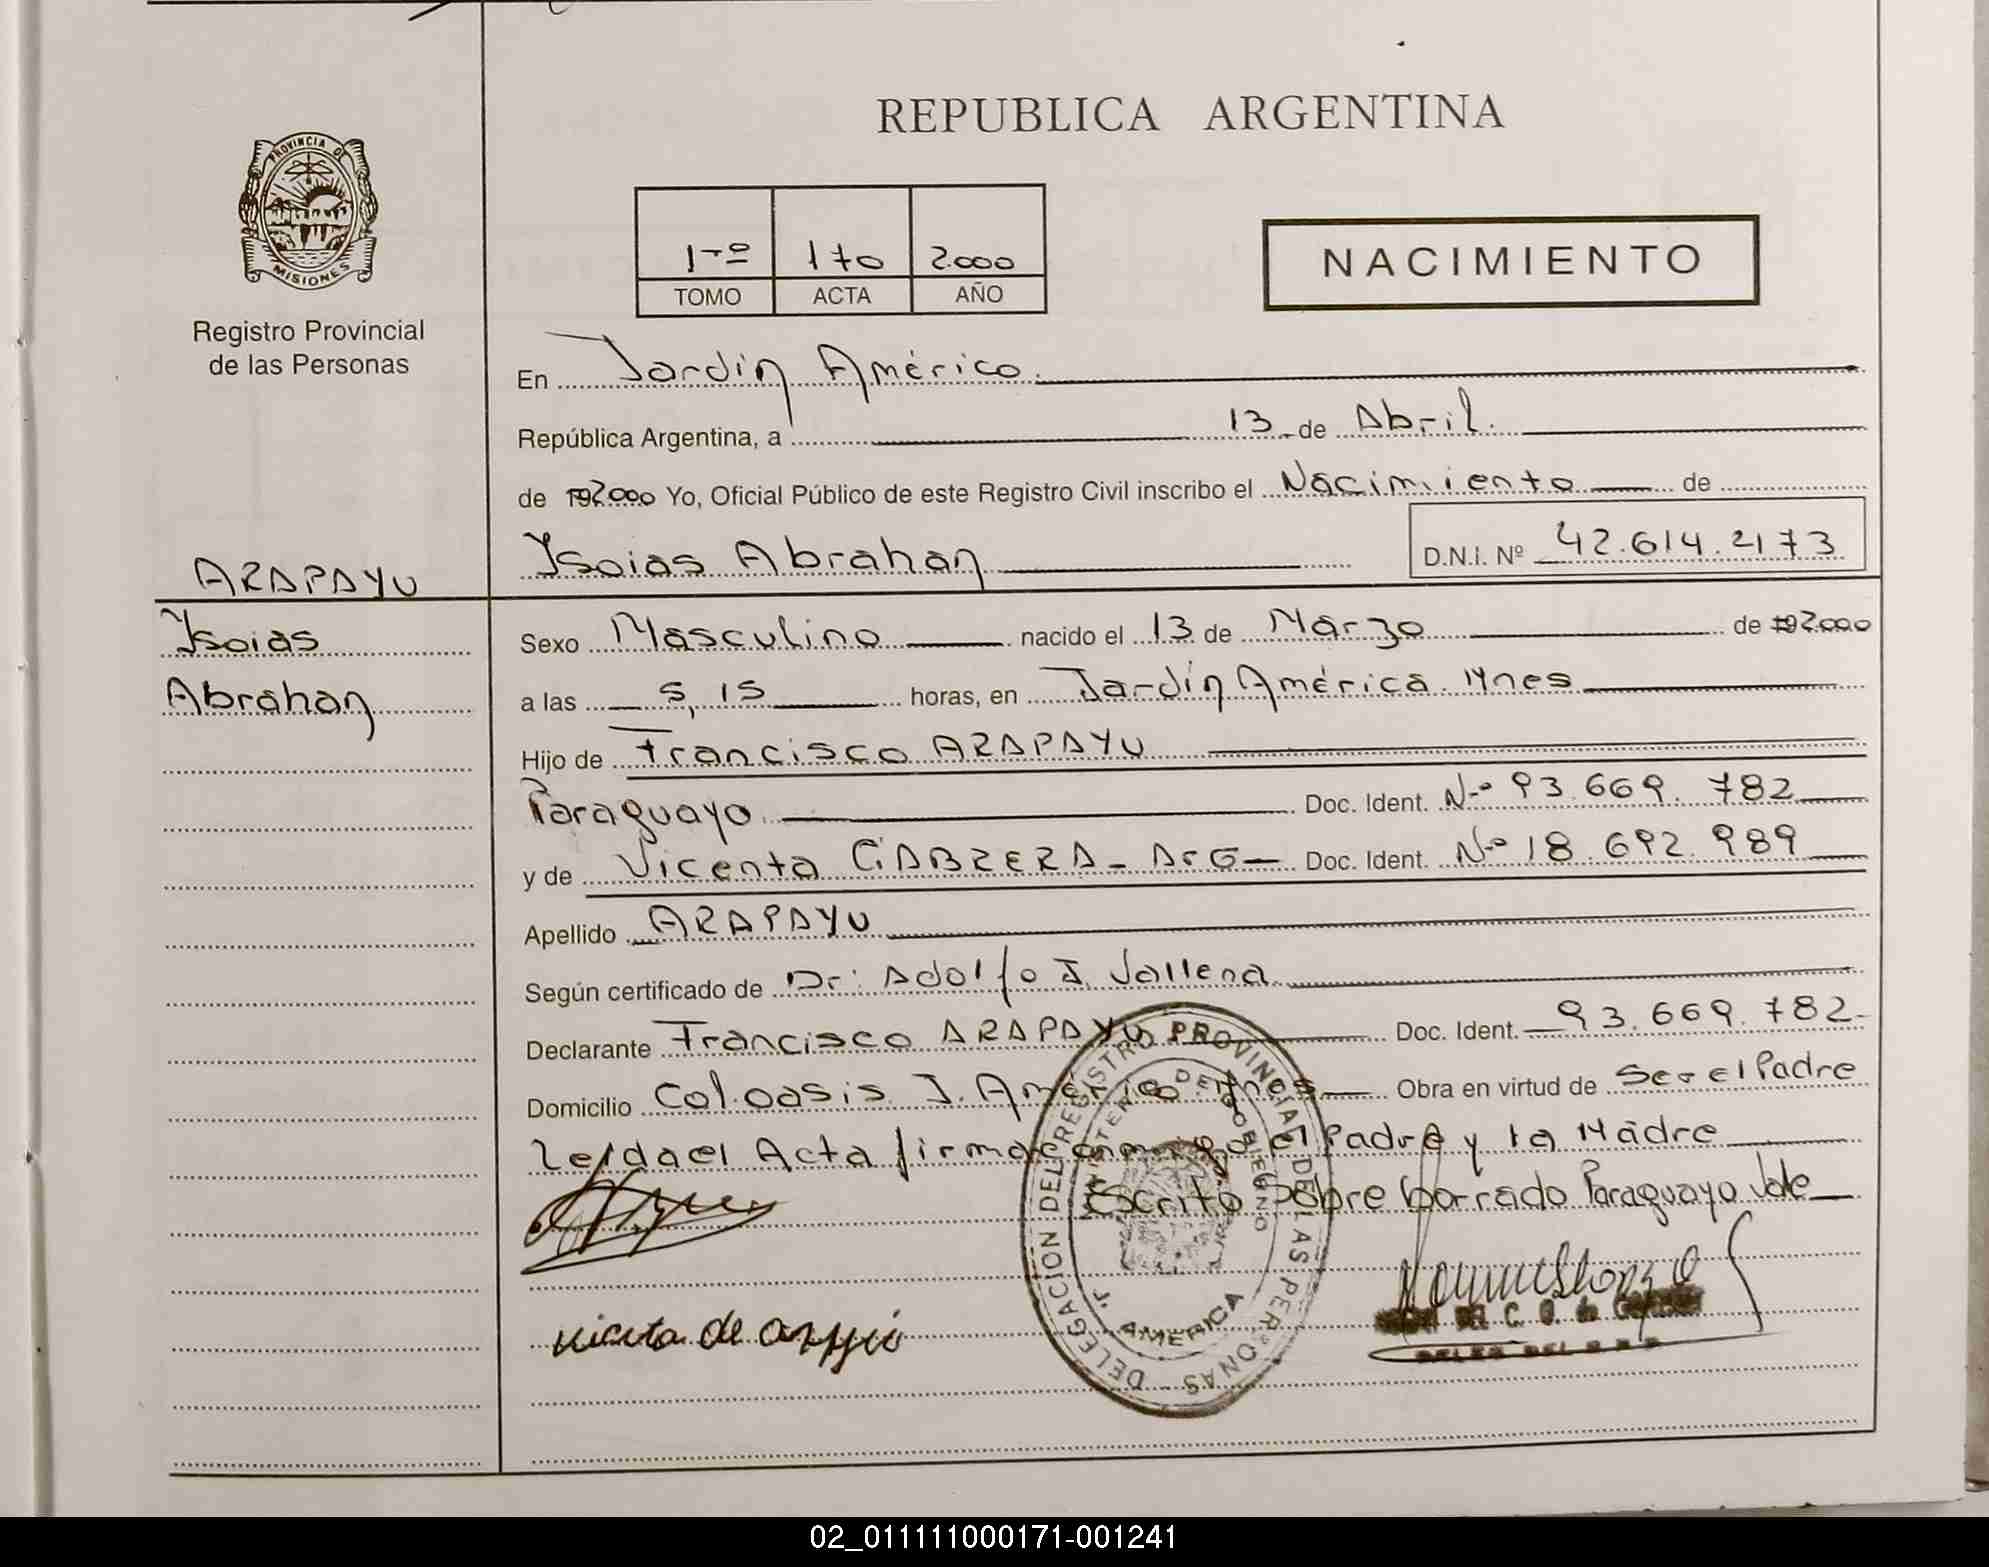 REPUBLICA ARGENTINA
PROVINCIA DE
MISIONES
Registro Provincial
de las Personas
1rº 170 2.000
TOMO ACTA AÑO
NACIMIENTO
En Jardín América.
República Argentina, a 13 de Abril.
de 192.000 Yo, Oficial Público de este Registro Civil inscribo el Nacimiento de
Ysaias Abrahan D.N.I. Nº 42.614.2173
ARAPAYU
Ysaias
Abrahan
Sexo Masculino nacido el 13 de Marzo de 192.000
a las 5,15 horas, en Jardín América Mnes
Hijo de Francisco ARAPAYU
Paraguayo Doc. Ident. Nº 93.669.782
y de Vicenta CABRERA - Arg - Doc. Ident. Nº 18.692.989
Apellido ARAPAYU
Según certificado de Dr: Adolfo J. Vallena
Declarante Francisco ARAPAYU Doc. Ident. 93.669.782
Domicilio Col. oasis J. América Mnes Obra en virtud de Ser el Padre
Leida el Acta firma conmigo el Padre y la Madre
Escrito Sobre borrado Paraguayo Vale
DELEGACION DEL REGISTRO PROVINCIAL DE LAS PERSONAS
MINISTERIO DE GOBIERNO
J. AMERICA
02_011111000171-001241